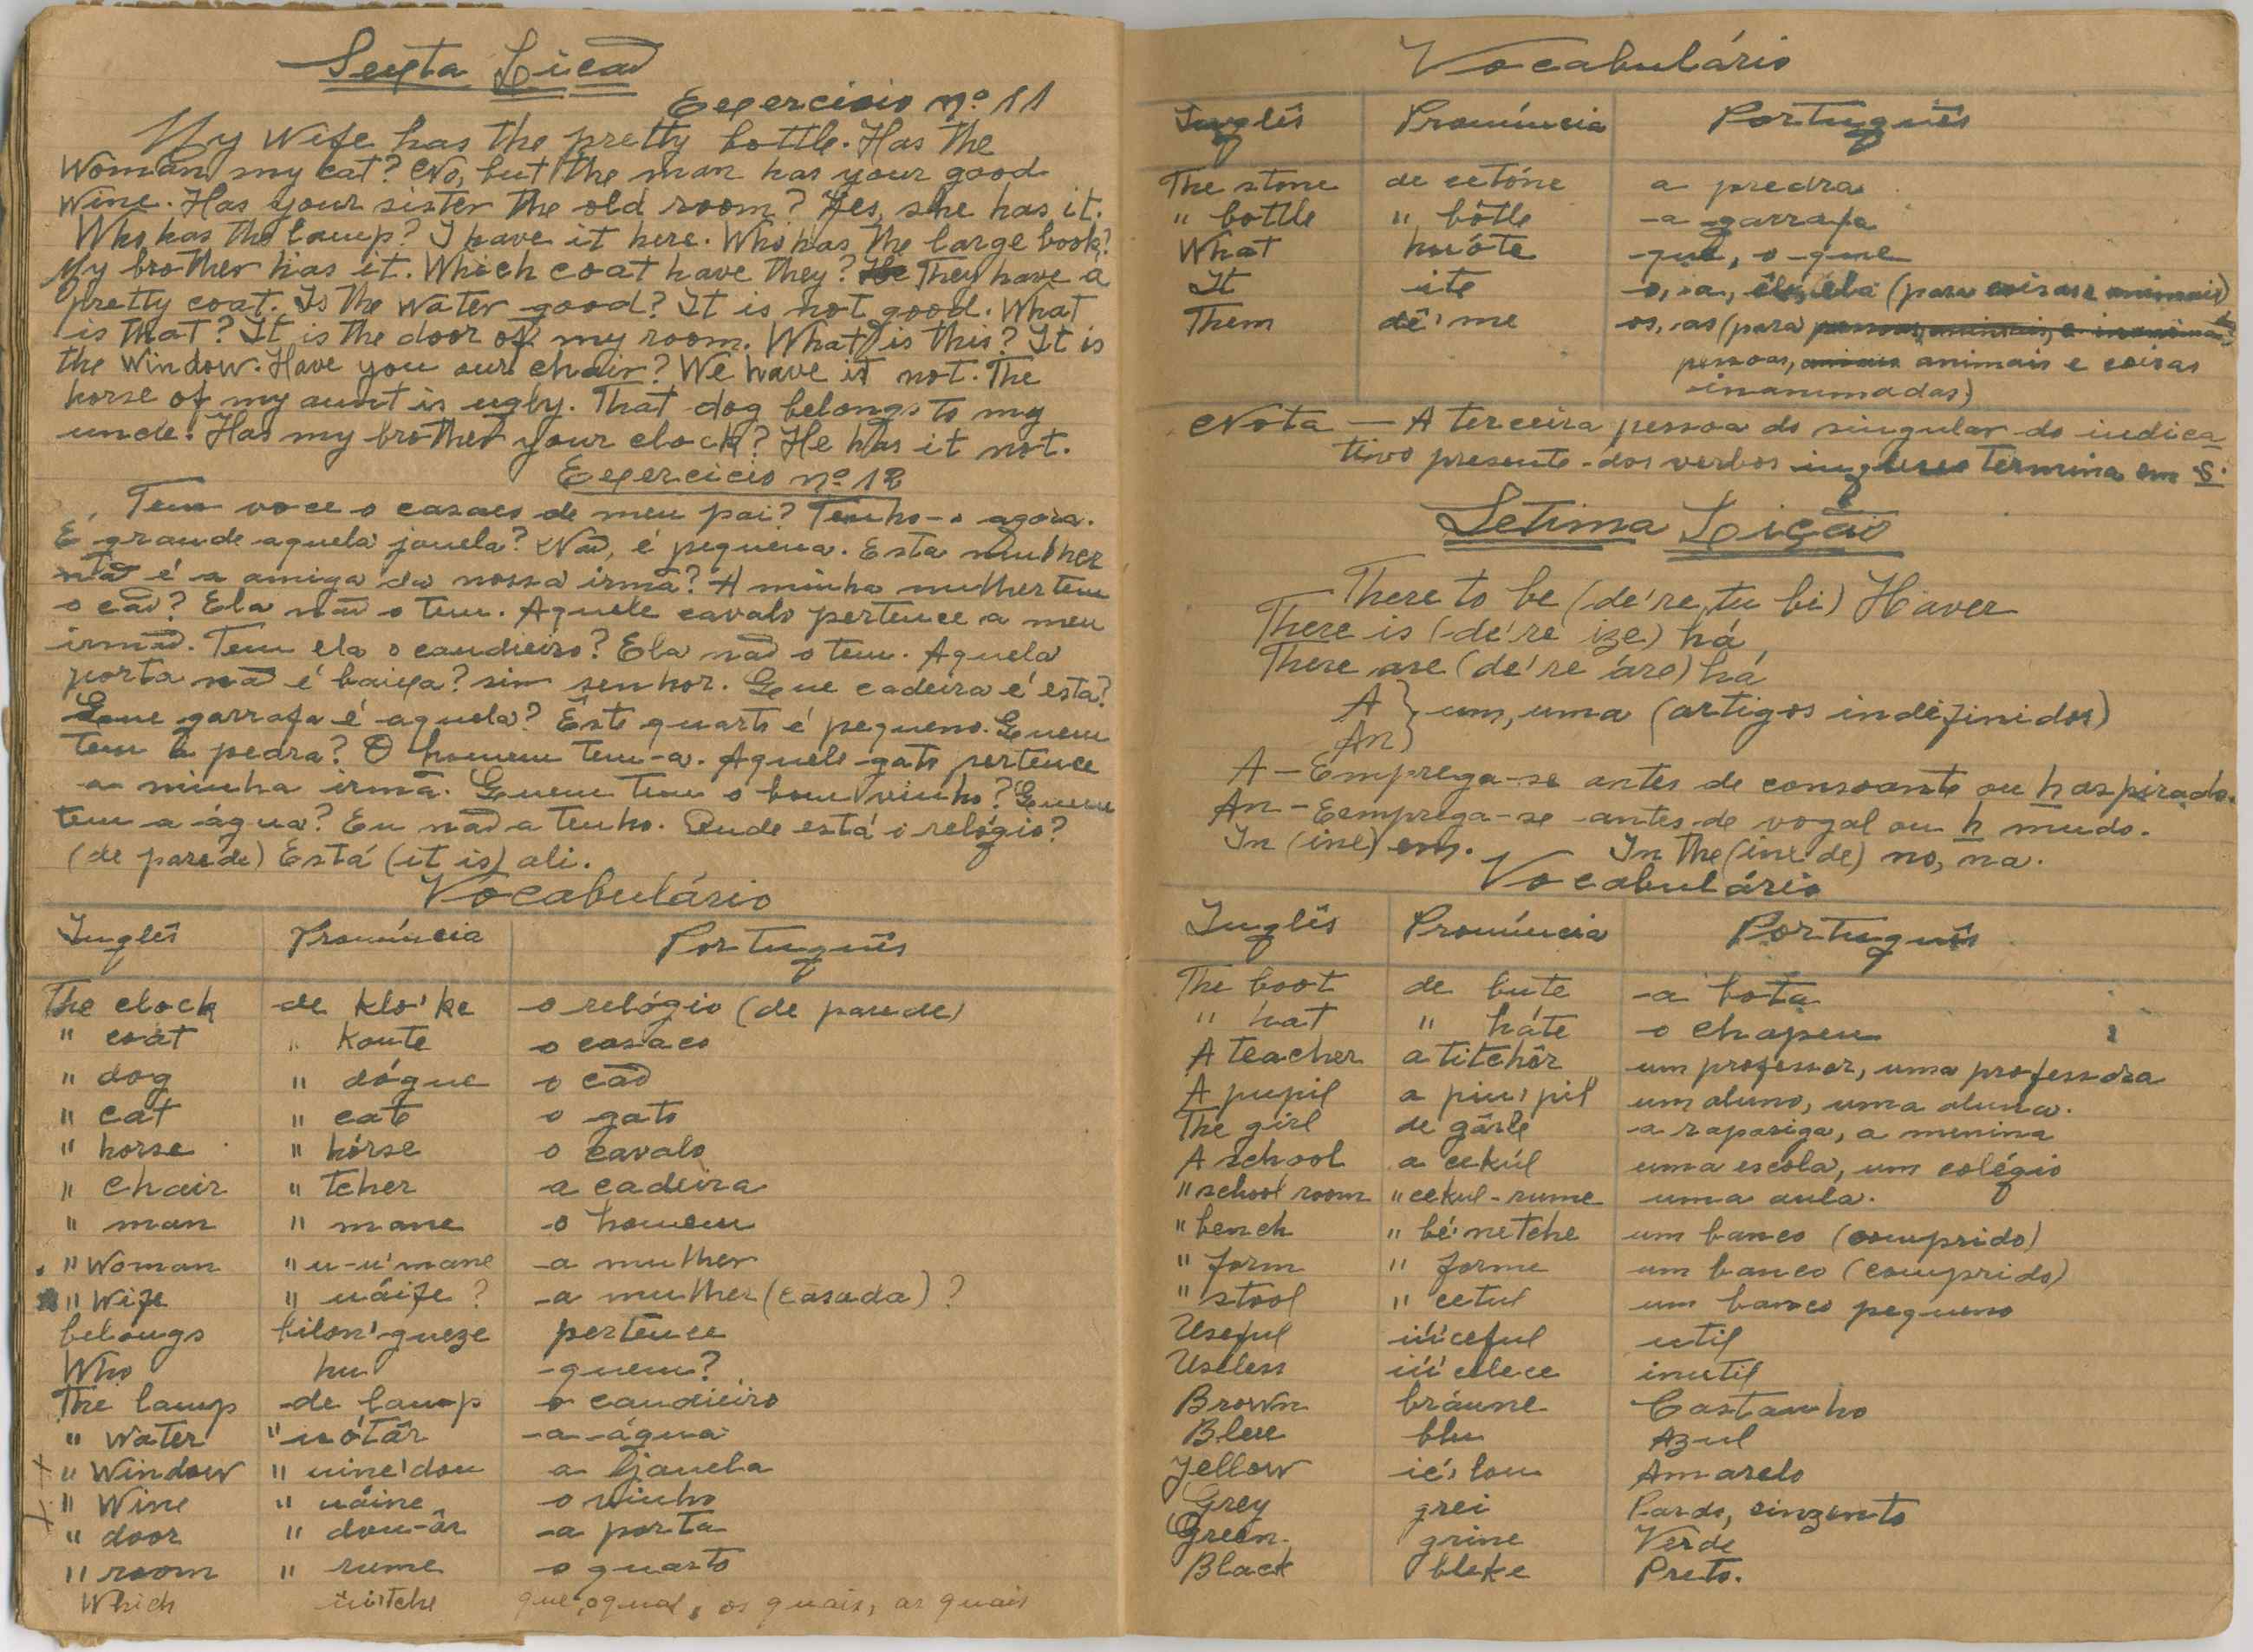 Sexta Lição
Exercicio nº 11
My wife has the pretty bottle. Has the
woman my cat? No, but the man has your good
wine. Has your sister the old room? Yes, she has it.
Who has the lamp? I have it here. Who has the large book?
My brother has it. Which coat have they? They have a
pretty coat. Is the water good? It is not good. What
is that? It is the door of my room. What is this? It is
the window. Have you our chair? We have it not. The
horse of my aunt is ugly. That dog belongs to my
uncle. Has my brother your clock? He has it not.
Exercicio nº 12
Tem voce o casaco de meu pai? Tenho-o agora.
É grande aquela janela? Não, é pequena. Esta mulher
não é a amiga da nossa irmã? A minha mulher tem
o cão? Ela não o tem. Aquele cavalo pertence a meu
irmão. Tem ela o candieiro? Ela não o tem. Aquela
porta não é baixa? sim senhor. Que cadeira é esta?
Que garrafa é aquela? Êste quarto é pequeno. Quem
tem a pedra? O homem tem-a. Aquele gato pertence
a minha irmã. Quem tem o bom vinho? Quem
tem a água? Eu não a tenho. Onde está o relógio?
(de parede) Está (it is) ali.
Vocabulário
Inglês Pronúncia Português
The clock de klo'ke o relógio (de parede)
" coat " koute o casaco
" dog " dógue o cão
" cat " cate o gato
" horse " hórse o cavalo
" chair " tcher a cadeira
" man " mane o homem
" Woman " u-u'mane a mulher
" Wife " uáife ? a mulher (casada) ?
belongs bilon'gueze pertence
Who hu quem?
The lamp de lamp o candieiro
" Water " uótâr a água
" Window " uine'dou a janela
" Wine " uáine o vinho
" door " dou-âr a porta
" room " rume o quarto
Which üi'tche que, o qual, os quais, as quais
Vocabulário
Inglês Pronúncia Português
The stone de cetóne a pedra
" bottle " bótle a garrafa
What huóte que, o que
It ite o, a, êle, ela (para coisas e animais)
Them dê'me os, as (para
pessoas, animais e coisas
inanimadas)
Nota — A terceira pessoa do singular do indica
tivo presente dos verbos ingleses termina em S.
Setima Lição
There to be (de're tu bi) Haver
There is (de're ize) há
There are (de're áre) há
A
An } um, uma (artigos indefinidos)
A — Emprega-se antes de consoante ou h aspirado.
An — Eemprega-se antes de vogal ou h mudo.
In (ine) em. In the (ine de) no, na.
Vocabulário
Inglês Pronúncia Português
The boot de bute a bota
" hat " háte o chapeu
A teacher a titchâr um professor, uma professora
A pupil a piu'pil um aluno, uma aluna.
The girl de gârle a rapariga, a menina
A school a cekúl uma escola, um colégio
" school room " cekul-rume uma aula.
" bench " bé'netche um banco (comprido)
" form " forme um banco (comprido)
" stool " cetul um banco pequeno
Useful iú'ceful util
Useless iú'celece inutil
Brown bráune Castanho
Blue blu Azul
Yellow ié'lou Amarelo
Grey grei Pardo, cinzento
Green grine Verde
Black bleke Preto.